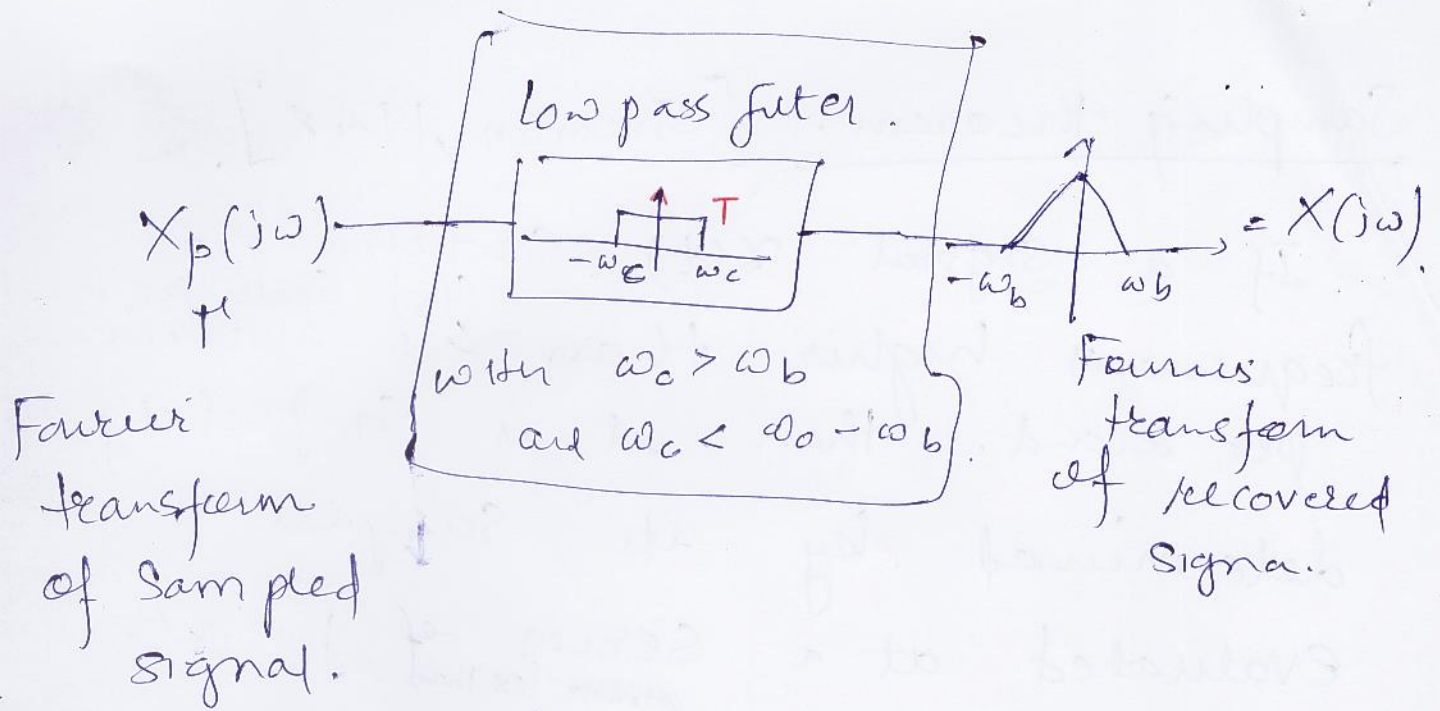 Low pass filter.
T
-ωc ωc
Xp(jω)
= X(jω).
-ωb ωb
with ωc > ωb
and ωc < ωo - ωb.
Fourier
transform
of Sampled
signal.
Fourier
transform
of recovered
Signa.